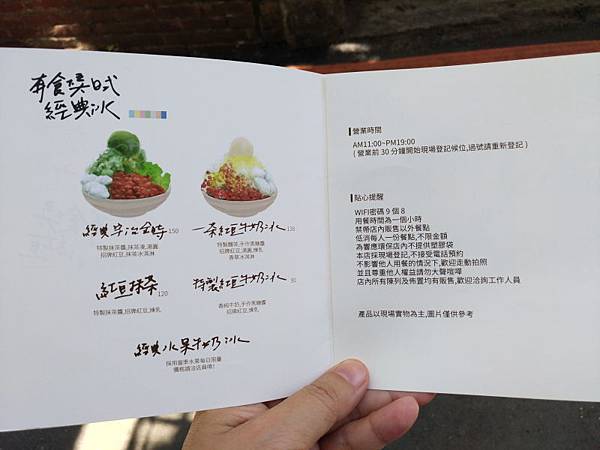 有食桑日式
經典冰
經典宇治金時 150
特製抹茶醬,抹茶凍,湯圓
招牌紅豆,抹茶冰淇淋
牛奶冰 130
招牌紅豆,湯圓,煉乳
香草冰淇淋
紅豆抹茶 120
特製抹茶醬,招牌紅豆,煉乳
特製紅豆牛奶冰 90
香純牛奶,手作黑糖醬
招牌紅豆,煉乳
經典水果牛奶冰
採用當季水果每日限量
價格請洽店員唷!
營業時間
AM11:00~PM19:00
( 營業前 30 分鐘開始現場登記候位,過號請重新登記 )
貼心提醒
WIFI密碼 9 個 8
用餐時間為一個小時
禁帶店內販售以外餐點
低消每人一份餐點,不限金額
為響應環保店內不提供塑膠袋
本店採現場登記,不接受電話預約
不影響他人用餐的情況下,歡迎走動拍照
並且尊重他人權益請勿大聲喧嘩
店內所有陳列及佈置均有販售,歡迎洽詢工作人員
產品以現場實物為主,圖片僅供參考